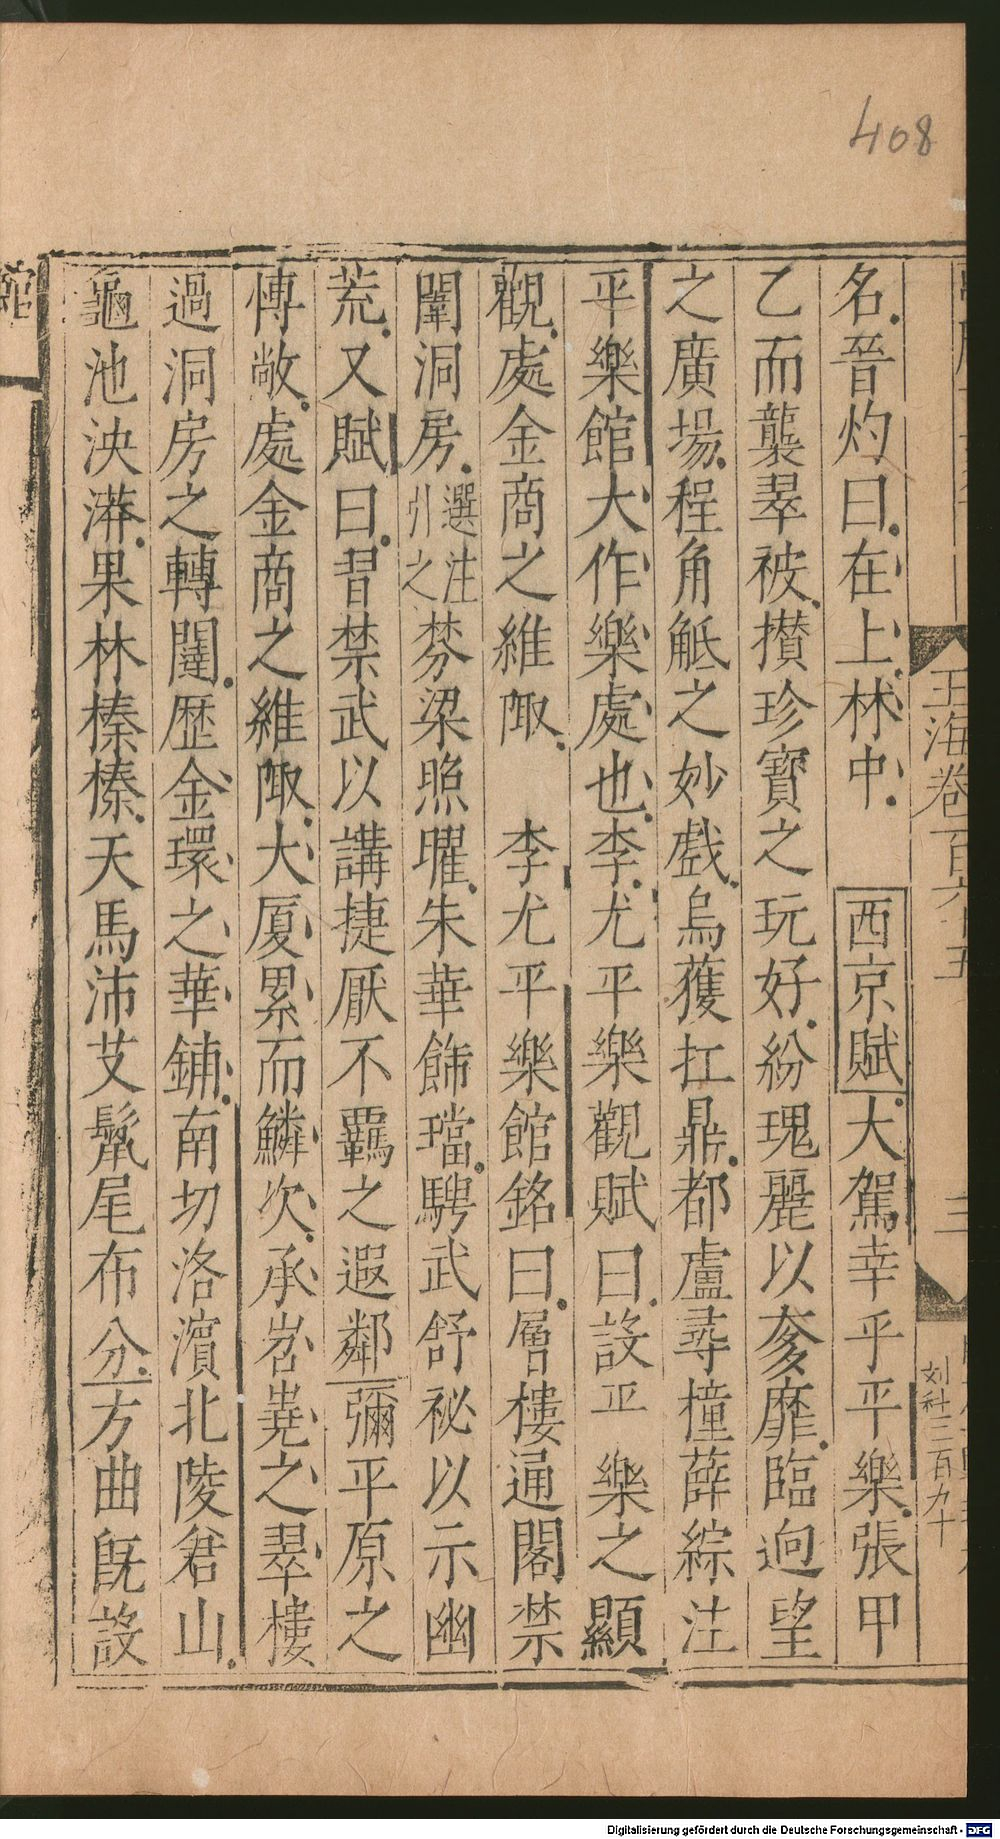 408
玉海卷百六十五
三
刘社三百九十
名晉灼曰在上林中　西京賦大駕幸乎平樂張甲
乙而襲翠被攅珍寶之玩好紛瑰麗以奓靡臨逈望
之廣場程角觝之妙戲烏獲扛鼎都盧尋撞薛綜注
平樂館大作樂處也李尤平樂觀賦曰設平樂之顯
觀處金商之維陬　李尤平樂館銘曰層樓通閣禁
闈洞房選注引之棼梁照曜朱華飾璫騁武舒祕以示幽
荒又賦曰習禁武以講捷厭不羈之遐鄰彌平原之
博敞處金商之維陬大厦累而鱗次承岧嶤之翠樓
過洞房之轉闥歷金環之華鋪南切洛濱北陵倉山
龜池泱漭果林榛榛天馬沛艾鬣尾布分方曲旣設
館
Digitalisierung gefördert durch die Deutsche Forschungsgemeinschaft - DFG